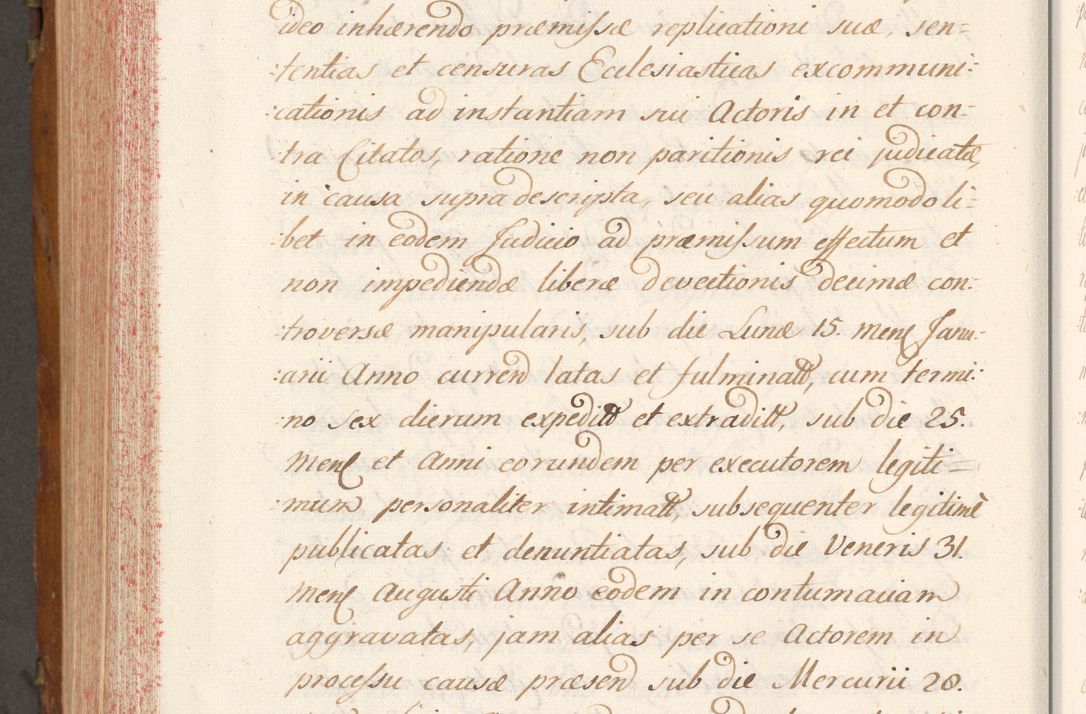 ideo inhærendo præmissæ replicationi suæ, sen=
:tentias et censuras Ecclesiasticas excommuni:
:cationis ad instantiam sui Actoris in et con:
:tra Citatos, ratione non paritionis rei judicatæ,
in causa supradescripta, seu alias quomodoli:
:bet in eodem Judicio ad præmissum effectum et
non impediendæ liberæ devectionis decimæ con:
:troversæ manipularis, sub die Lunæ 15. Mens Janu:
:arii Anno curren latas et fulminatt, cum termi:
:no sex dierum expeditt et extraditt, sub die 25.
Mens et Anni eorundem per executorem legiti=
:mum personaliter intimatt, subsequenter legitimè
publicatas et denuntiatas, sub die Veneris 31.
Mens Augusti Anno eodem in contumaciam
aggravatas, jam alias per se Actorem in
processu causæ præsen sub die Mercurii 28.